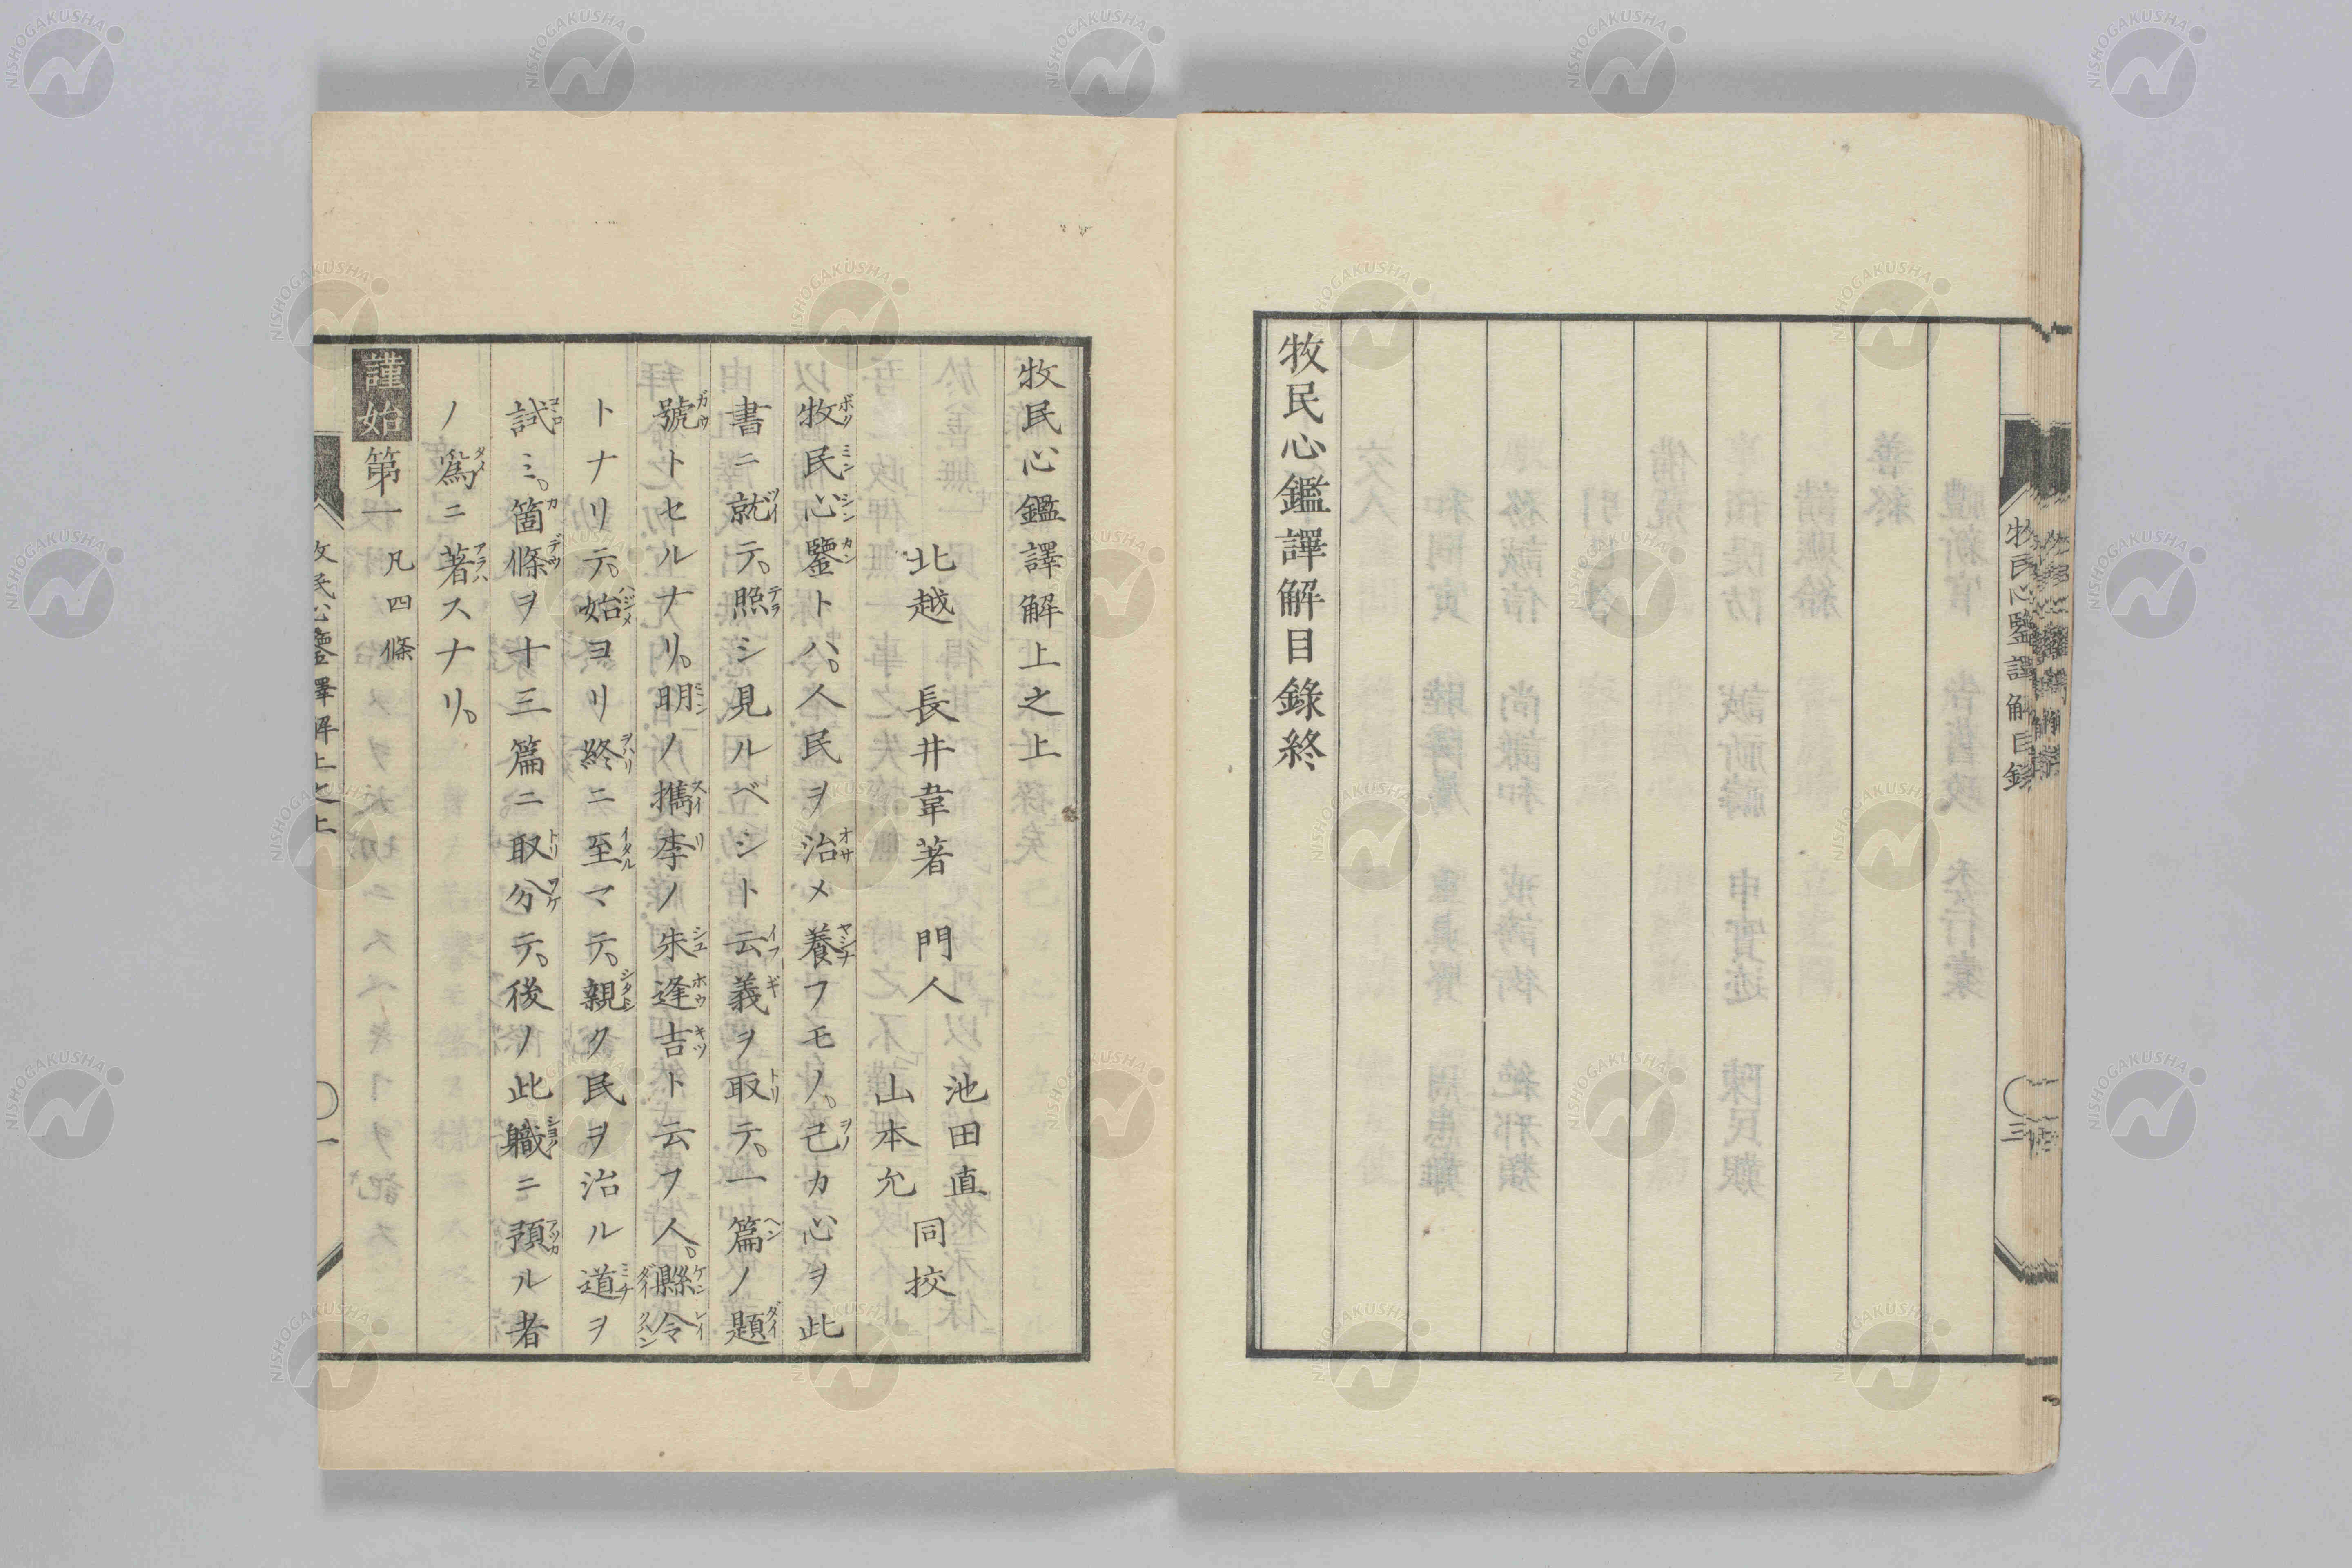 牧民心鑑譯解目錄終
牧民心鑑譯解上之上
北越　長井韋著　門人　池田直　山本允　同挍
牧民心鑒トハ。人民ヲ治メ養フモノ。己カ心ヲ此
書ニ就テ。照シ見ルベシト云義ヲ取テ。一篇ノ題
號トセルナリ。明ノ攜李ノ朱逢吉ト云フ人。縣令
トナリテ。始ヨリ終ニ至マテ。親ク民ヲ治ル道ヲ
試ミ。箇條ヲ十三篇ニ取分テ。後ノ此職ニ預ル者
ノ爲ニ著スナリ。
謹始第一　凡四條
牧民心鑒譯解上之上　〇一
牧民心鑒譯解目錄　〇三
NISHOGAKUSHA